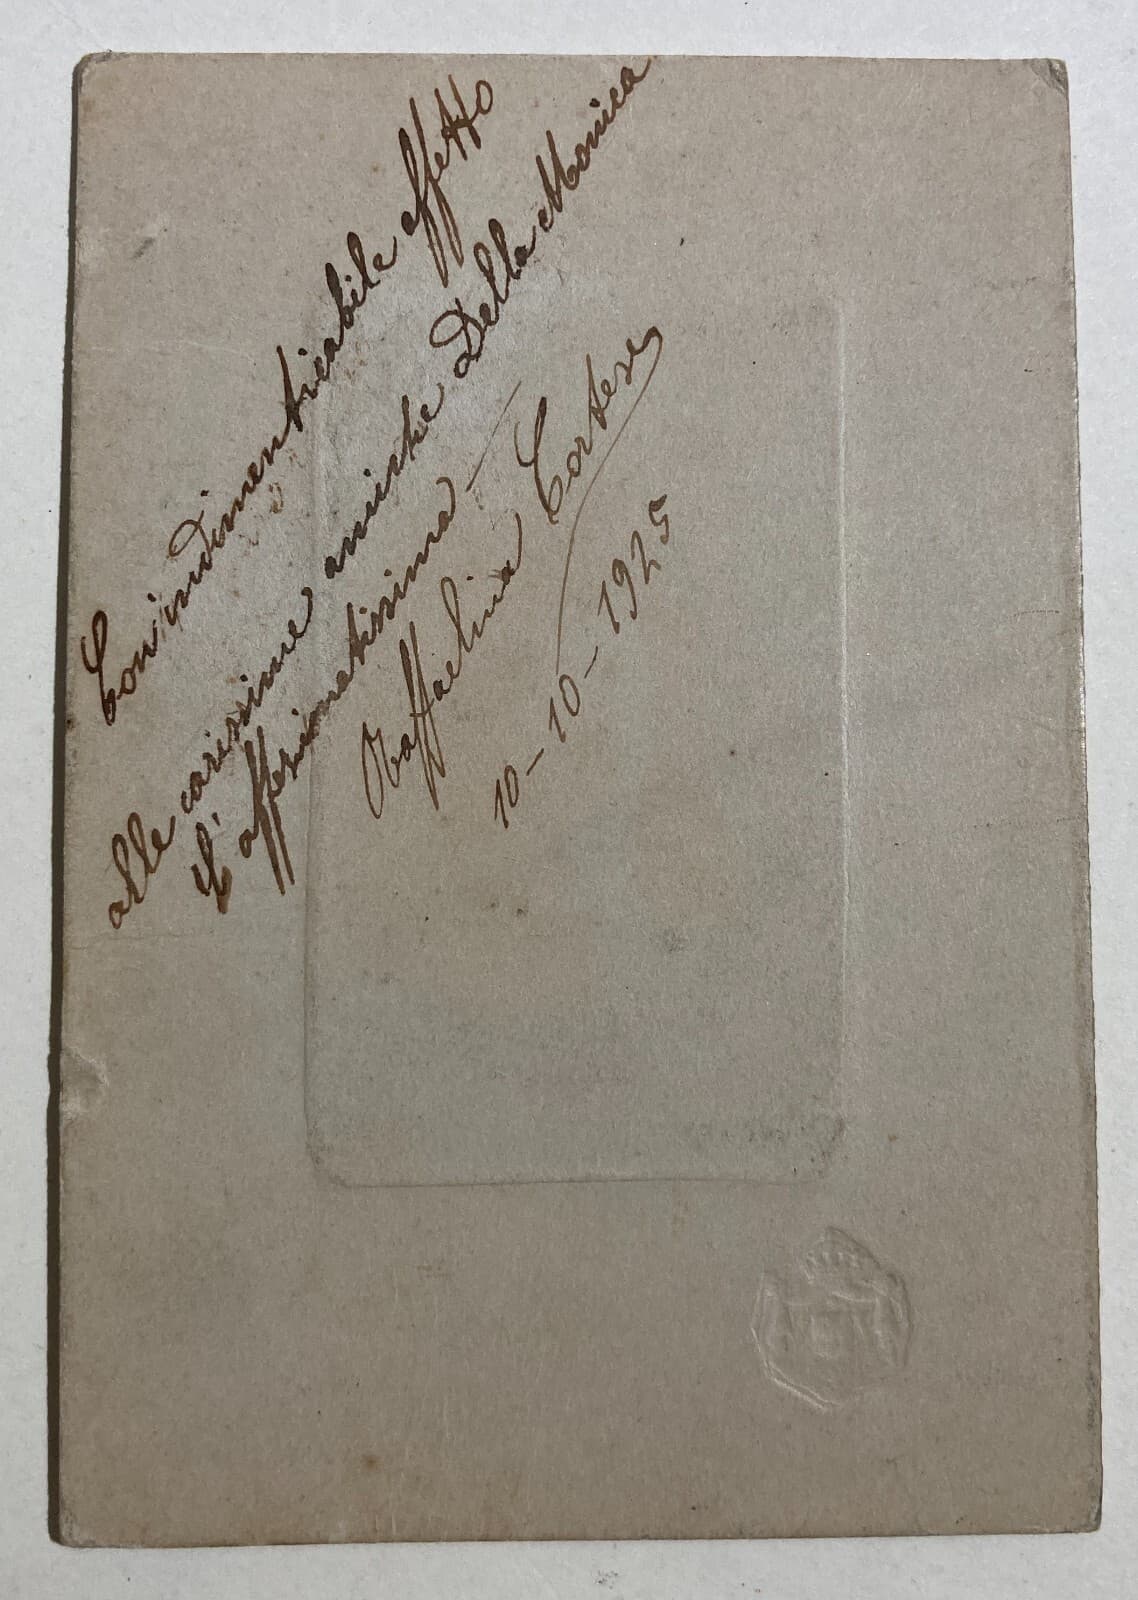 Con indimenticabile affetto
alle carissime amiche Della Monica
L'affezionatissima —
Raffaelina Cortese
10-10-1925